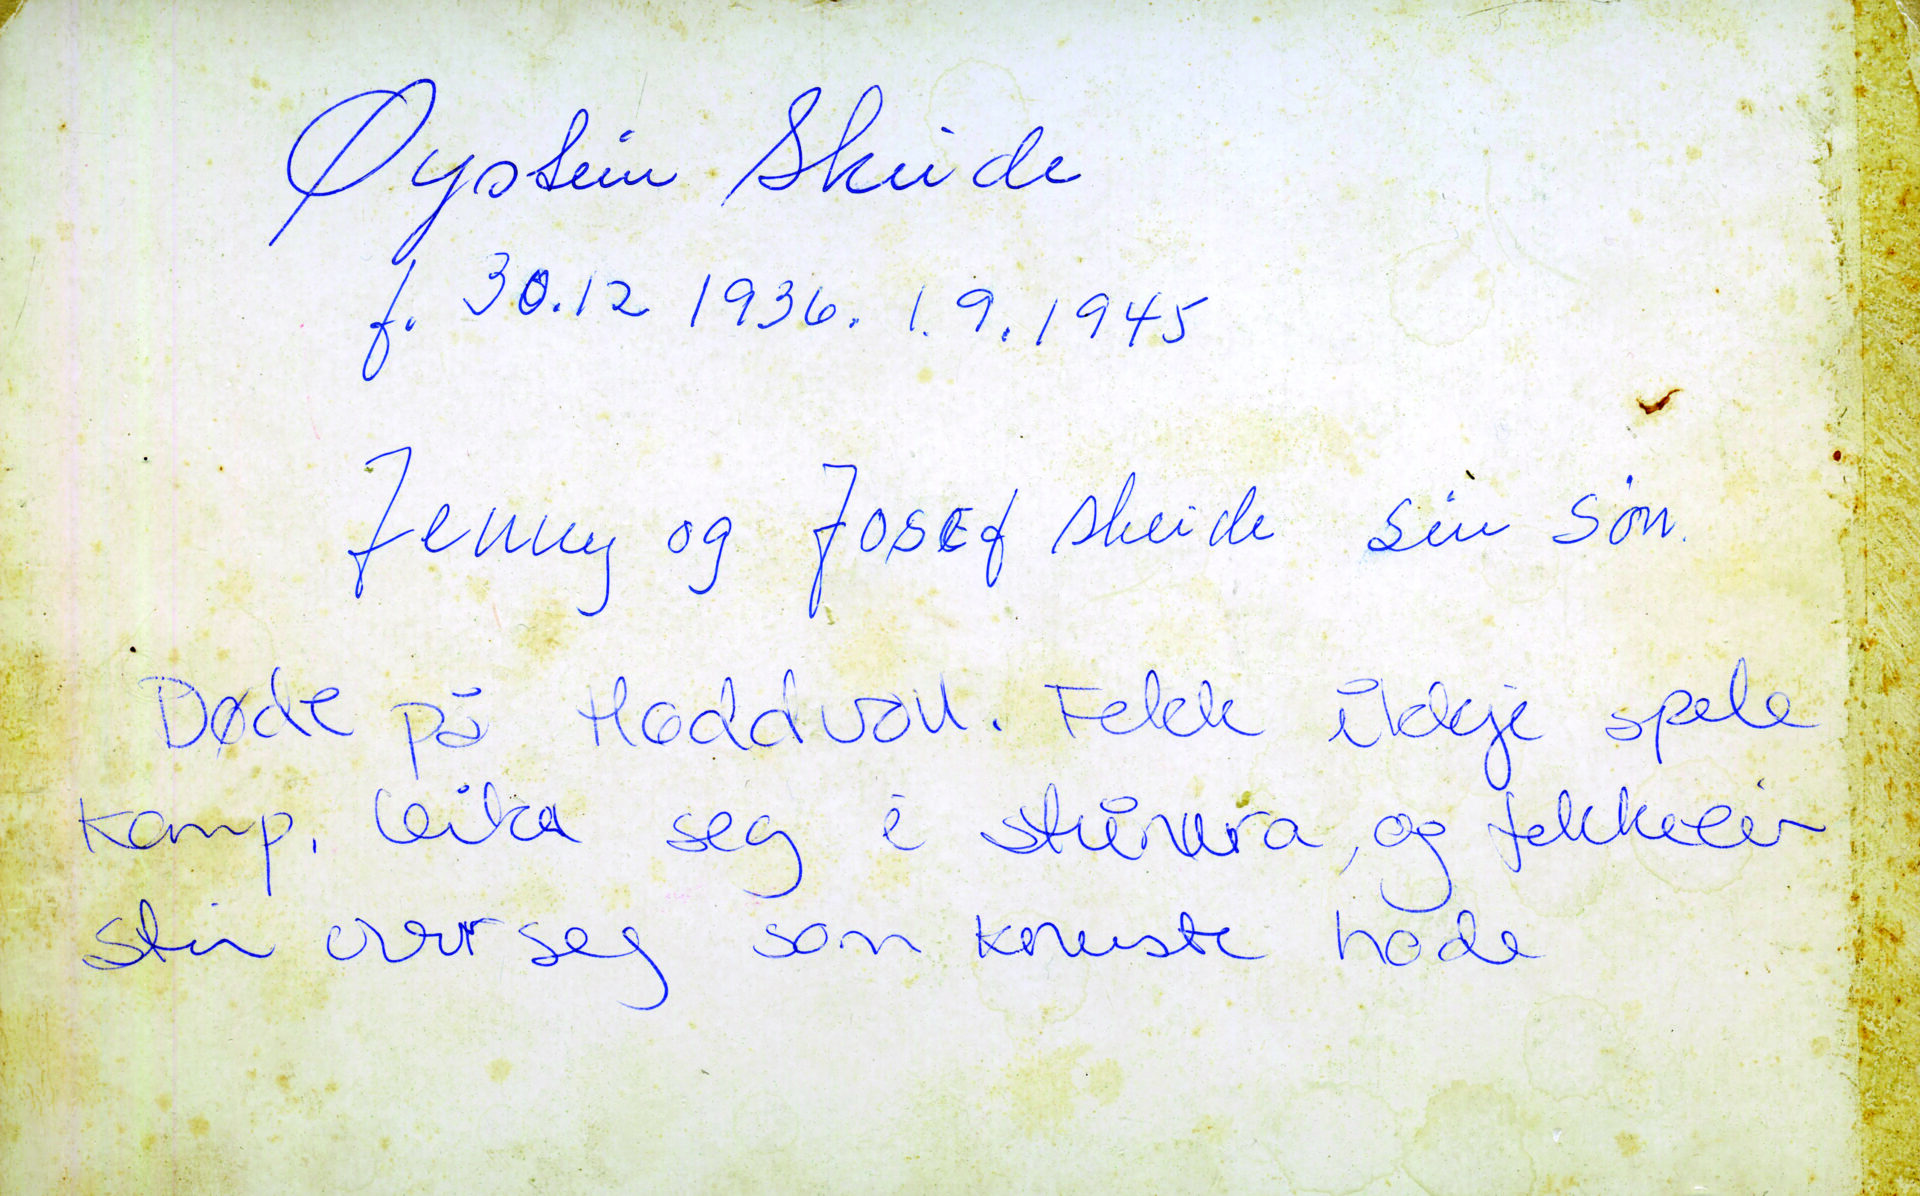 Øystein Skeide
f. 30.12 1936. 1.9.1945
Jenny og Josef Skeide sin søn.
Døde på Hoddvoll. Fekk ikkje spele
kamp, leika seg i steinura, og fekk ein
stein over seg som knuste hode